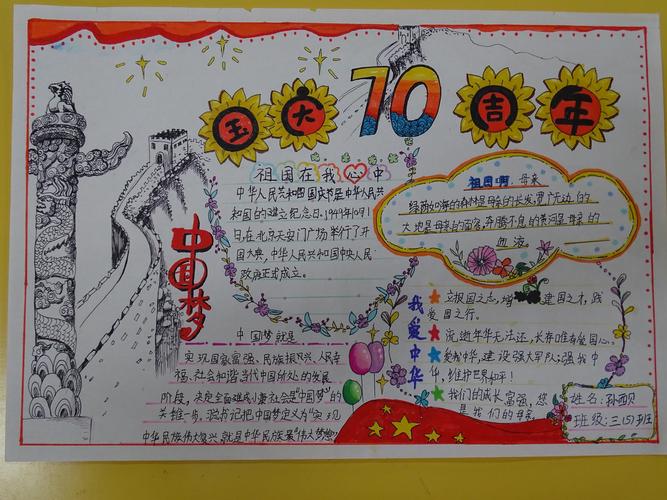 国大70吉年
祖国在我心中
中华人民共和国国庆节是中华人民共
和国的建立纪念日。1949年10月1
日，在北京天安门广场举行了开
国大典，中华人民共和国中央人民
政府正式成立。
祖国啊，母亲
绿茵如海的森林是母亲的长发，宽广无边的
大地是母亲的面容，奔腾不息的黄河是母亲的
血液。
中国梦
中国梦就是
实现国家富强、民族振兴、人民幸
福、社会和谐当代中国所处的发展
阶段，决定全面建成小康社会是“中国梦”的
关键一步。总书记把中国梦定义为“实现
中华民族伟大复兴，就是中华民族最“伟大梦想
我爱中华
立报国之志，增建国之才，践
爱国之行。
流逝年华无法还，长存唯有爱国心。
爱我中华，建设强大军队；强我中
华，维护世界和平！
我们的成长富强，您
是我们的母亲
姓名：孙
班级：三（5）班